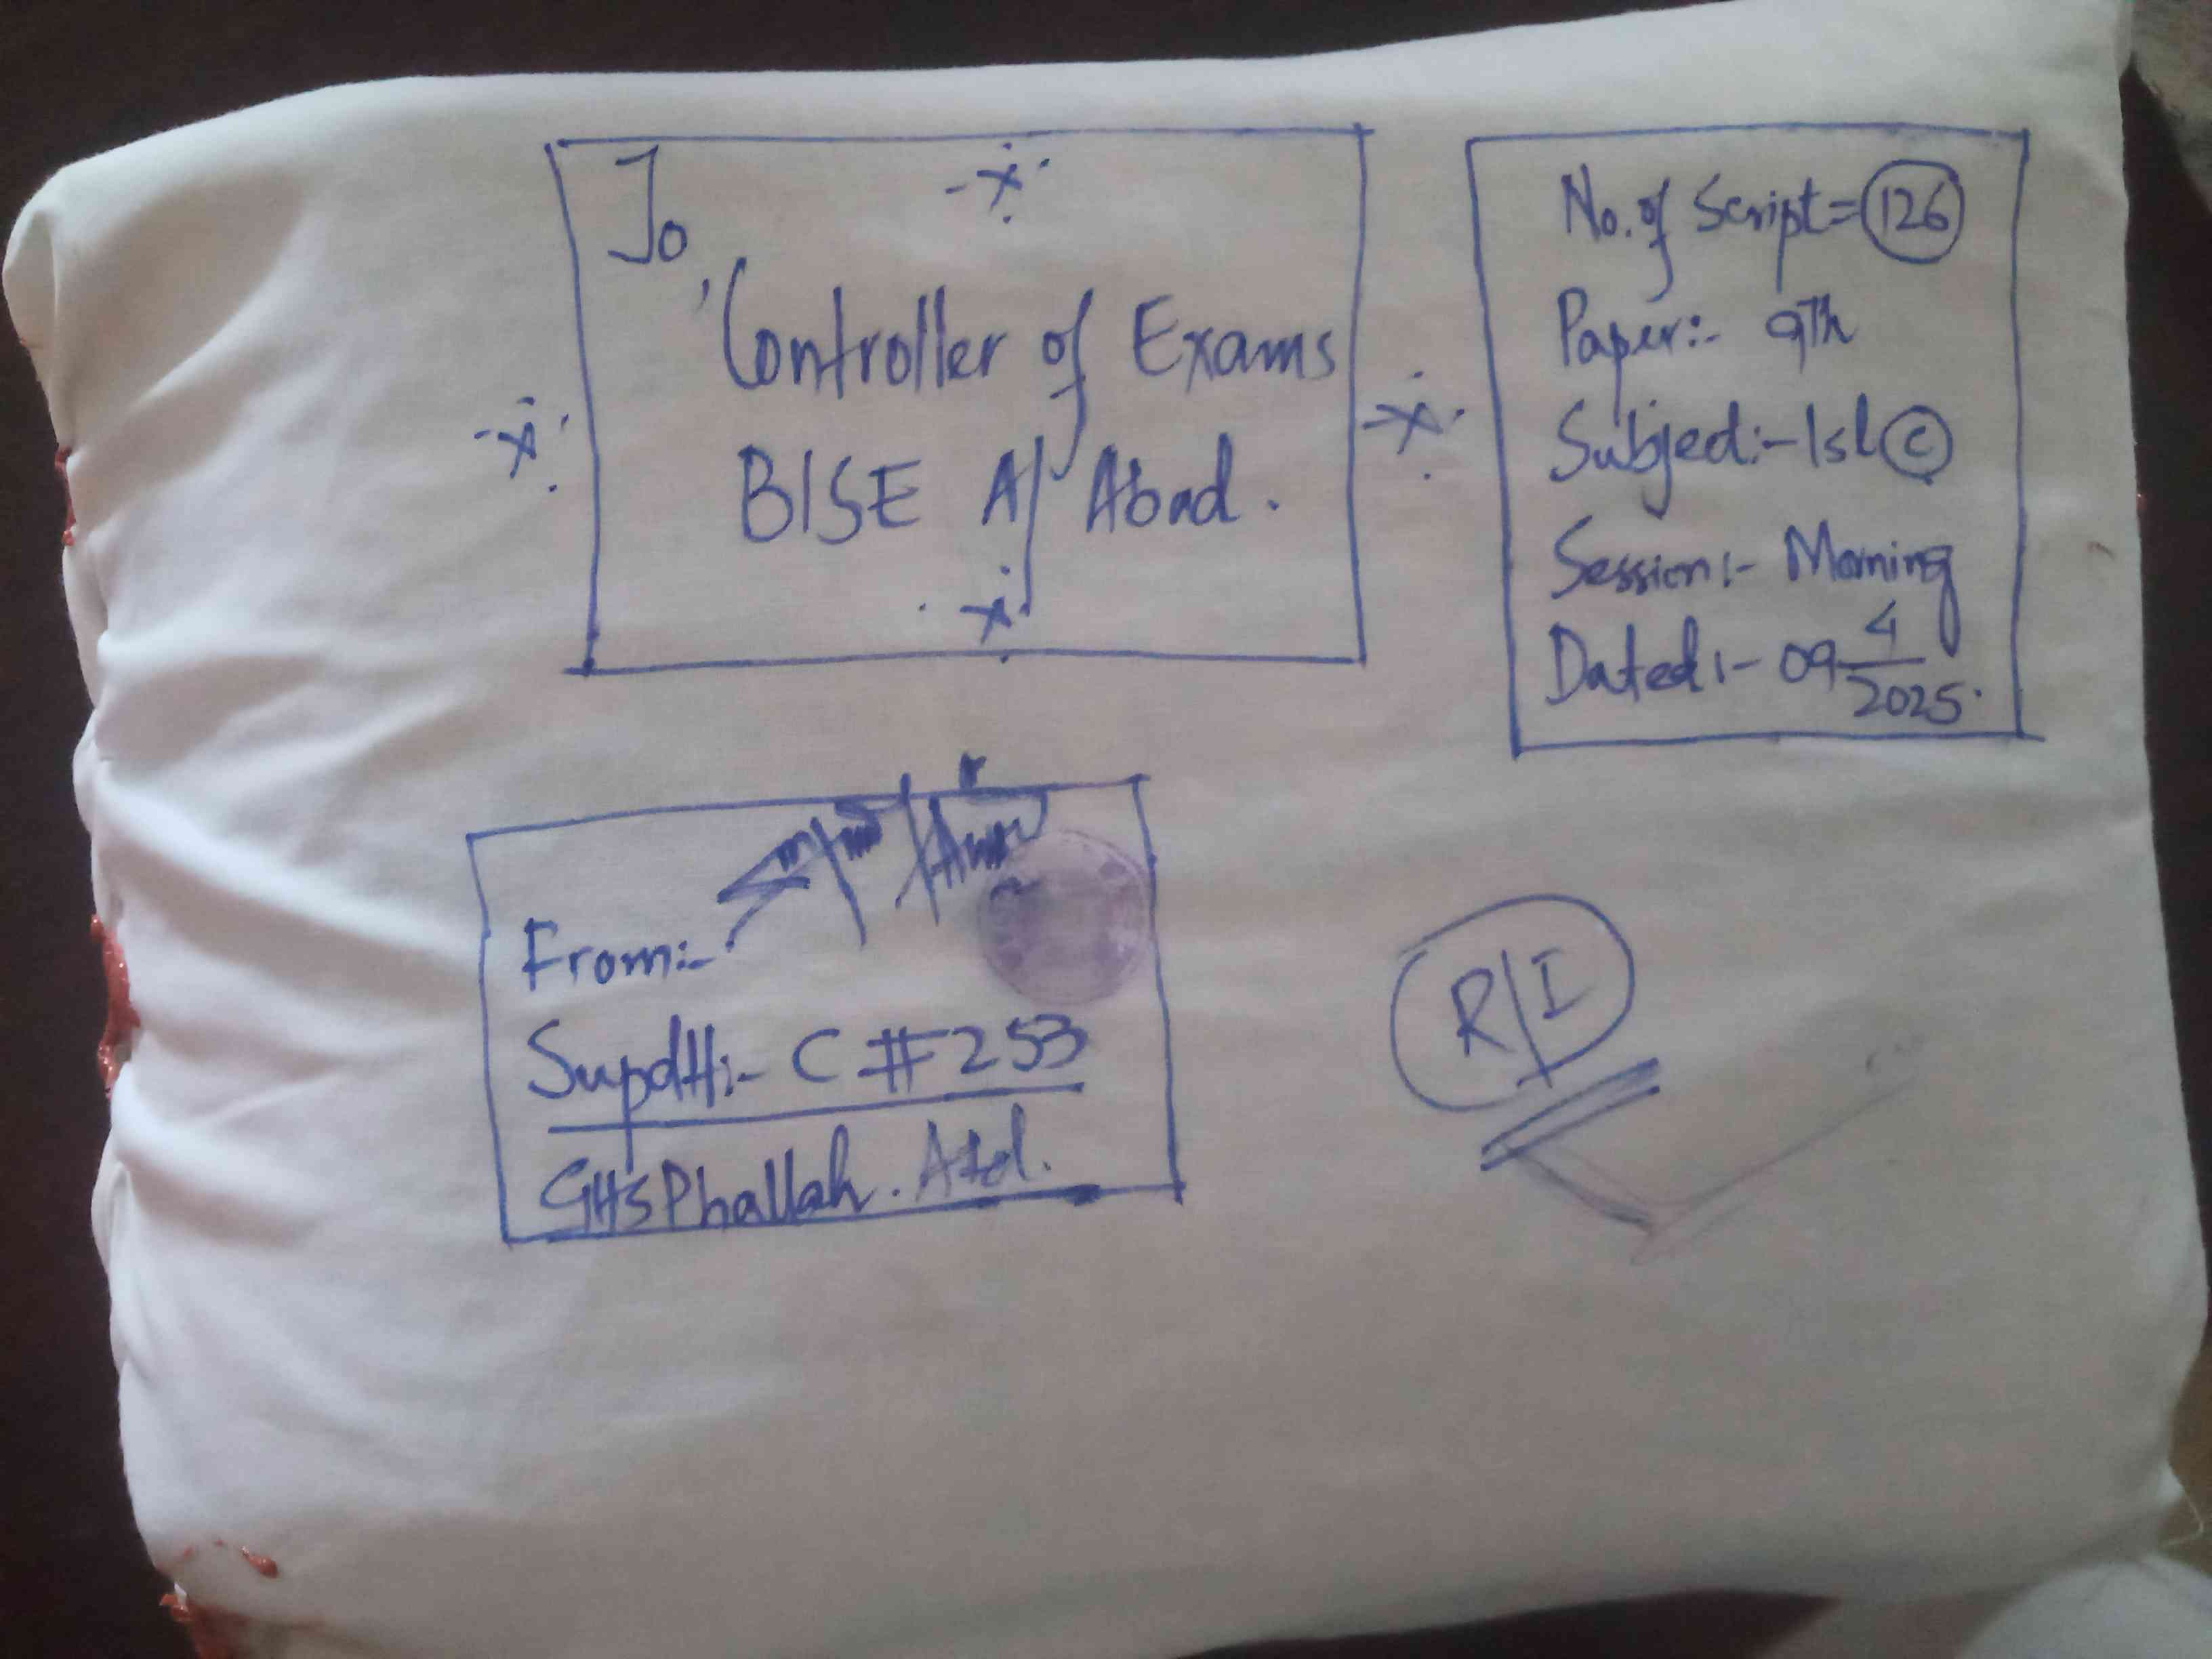 To
Controller of Exams
BISE A/Abad.
No. of Script = 126
Paper:- 9Th
Subject:- Isl C
Session:- Morning
Dated:- 09 4/2025.
From:-
Supdtt:- C # 253
GHS Phallah. Atd.
R/I